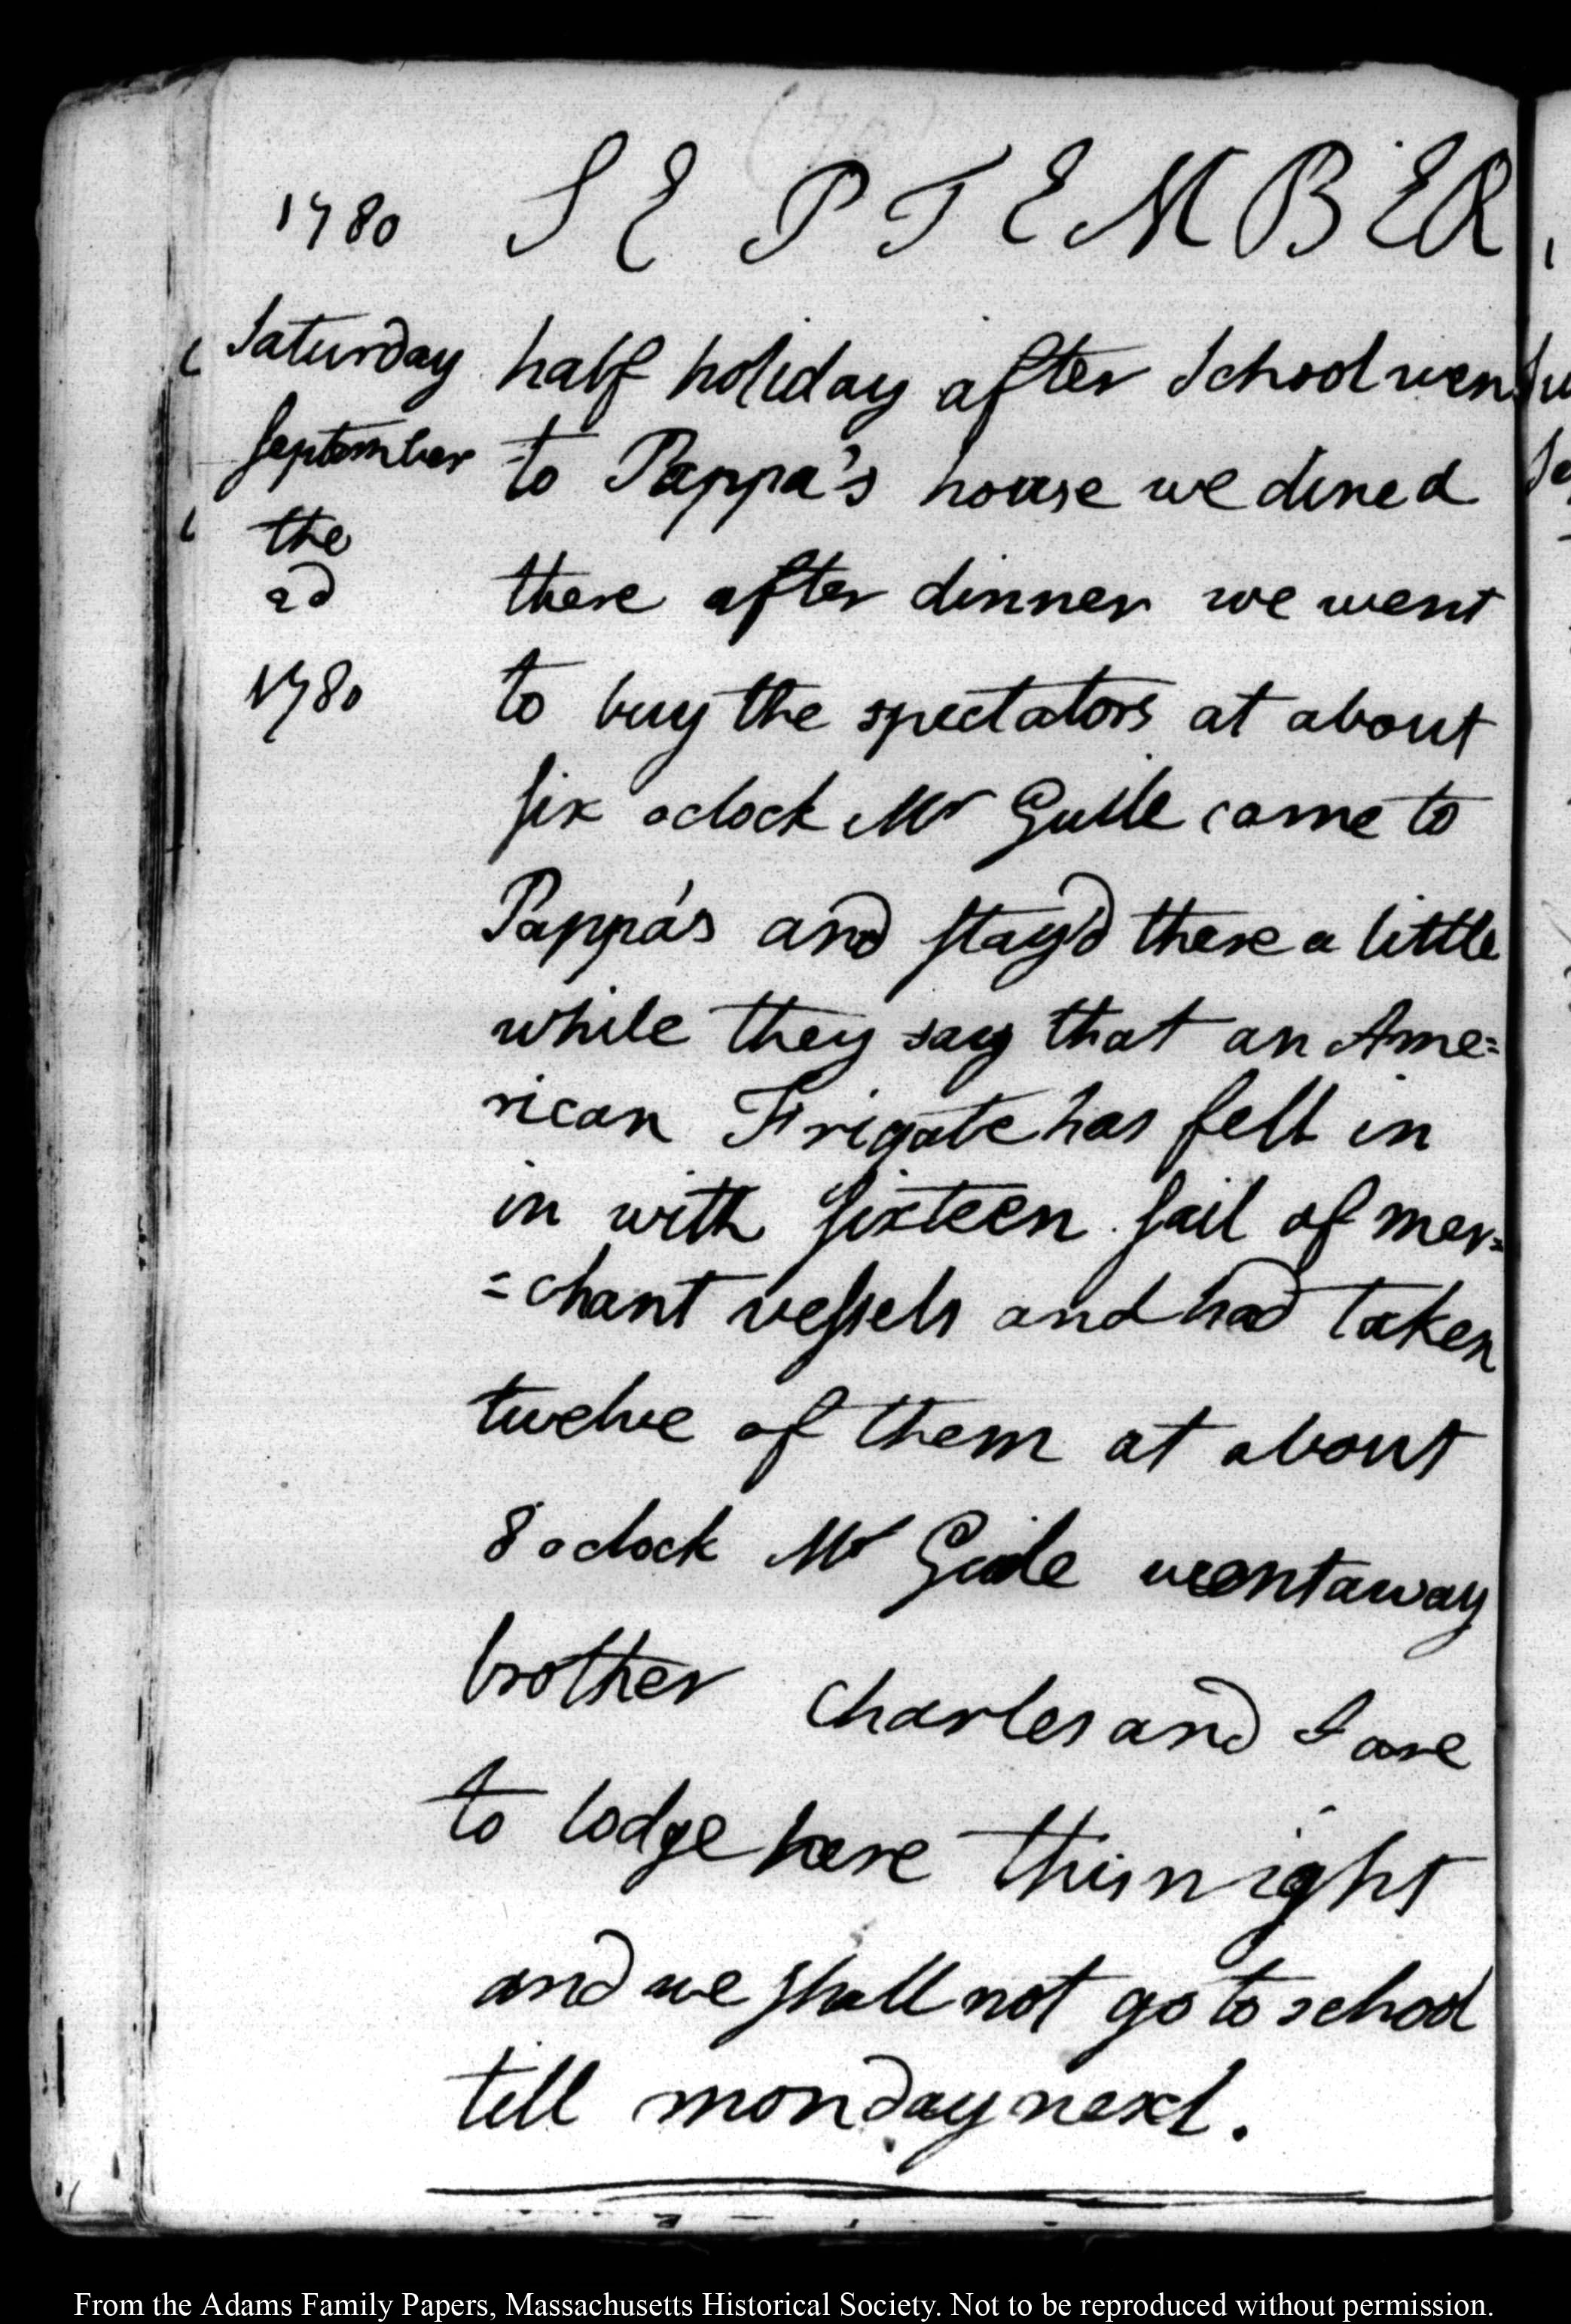 1780 SEPTEMBER
Saturday
September
the
2d
1780
half holiday after School wen
to Pappa's house we dined
there after dinner we went
to buy the spectators at about
six oclock Mr Guile came to
Pappa's and stay'd there a little
while they say that an Ame=
rican Frigate has fell in
in with sixteen sail of mer=
=chant vessels and had taken
twelve of them at about
8 oclock Mr Guile went away
brother Charles and I are
to lodge here this night
and we shall not go to school
till monday next.
From the Adams Family Papers, Massachusetts Historical Society. Not to be reproduced without permission.